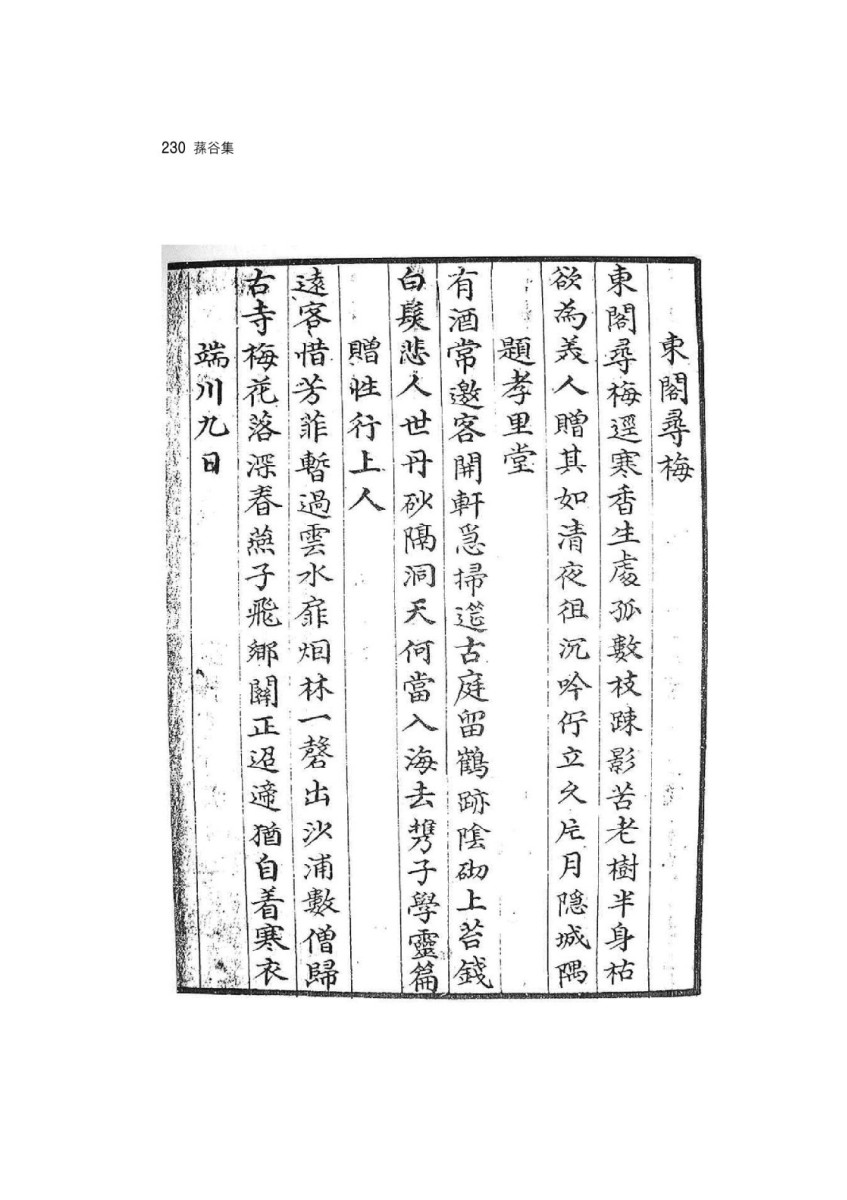 230 蓀谷集
東閣尋梅
東閣尋梅逕寒香生處孤數枝踈影苦老樹半身枯
欲為美人贈其如清夜徂沉吟佇立久片月隱城隅
題孝里堂
有酒常邀客開軒急掃筵古庭留鶴跡陰砌上苔錢
白髮悲人世丹砂隔洞天何當入海去携子學靈篇
贈性行上人
遠客惜芳菲暫過雲水扉烟林一磬出沙浦數僧歸
古寺梅花落深春燕子飛鄉關正迢遞猶自着寒衣
端川九日